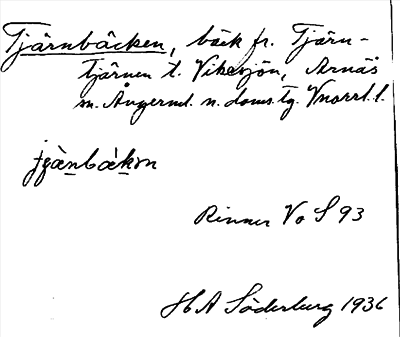 Tjärnbäcken, bäck fr. Tjärn-
tjärnen t. Vikasjön, Arnäs
sn. Ångerml. n. doms. tg. Vnorrl. l.
Rinner V o S 93
H A Söderberg 1936